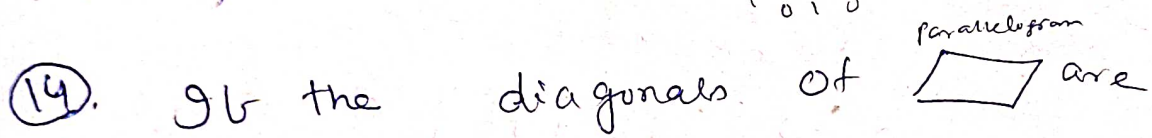 0 1 0
parallelogram
(14). If the diagonals of are